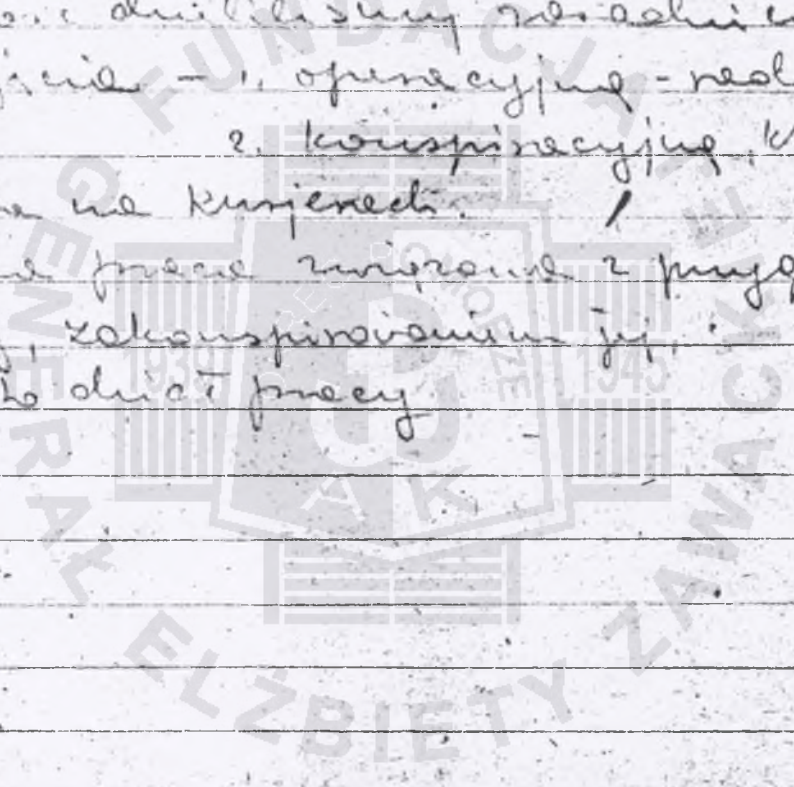 dzieliliśmy zasadnicz
jścia – 1. operacyjną –
2. konspiracyjną, k
na kurjerach.
praca związana z przyg
, zakonspirowaniem jej,
dział pracy
FUNDACJA
GENERAŁ ELŻBIETY ZAWACKIEJ
1939 1945
POMORZE
AK